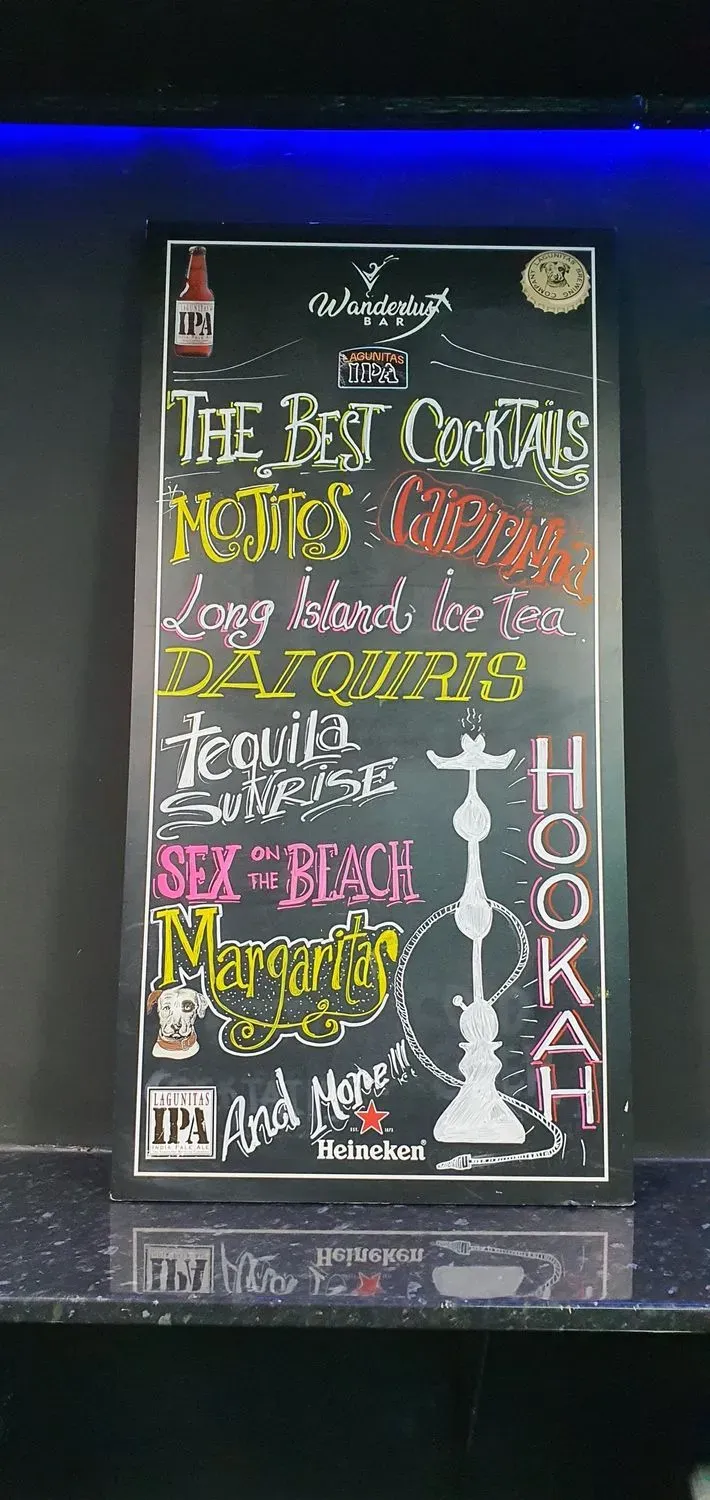 LAGUNITAS
IPA
Wanderlust
BAR
LAGUNITAS BREWING COMPANY
LAGUNITAS
IPA
THE BEST COCKTAILS
MOJITOS Caipirinha
Long Island Ice tea
DAIQUIRIS
tequila
SUNRISE
SEX ON THE BEACH
Margaritas
HOOKAH
And More!!!
LAGUNITAS
IPA
INDIA PALE ALE
EST. 1873
Heineken